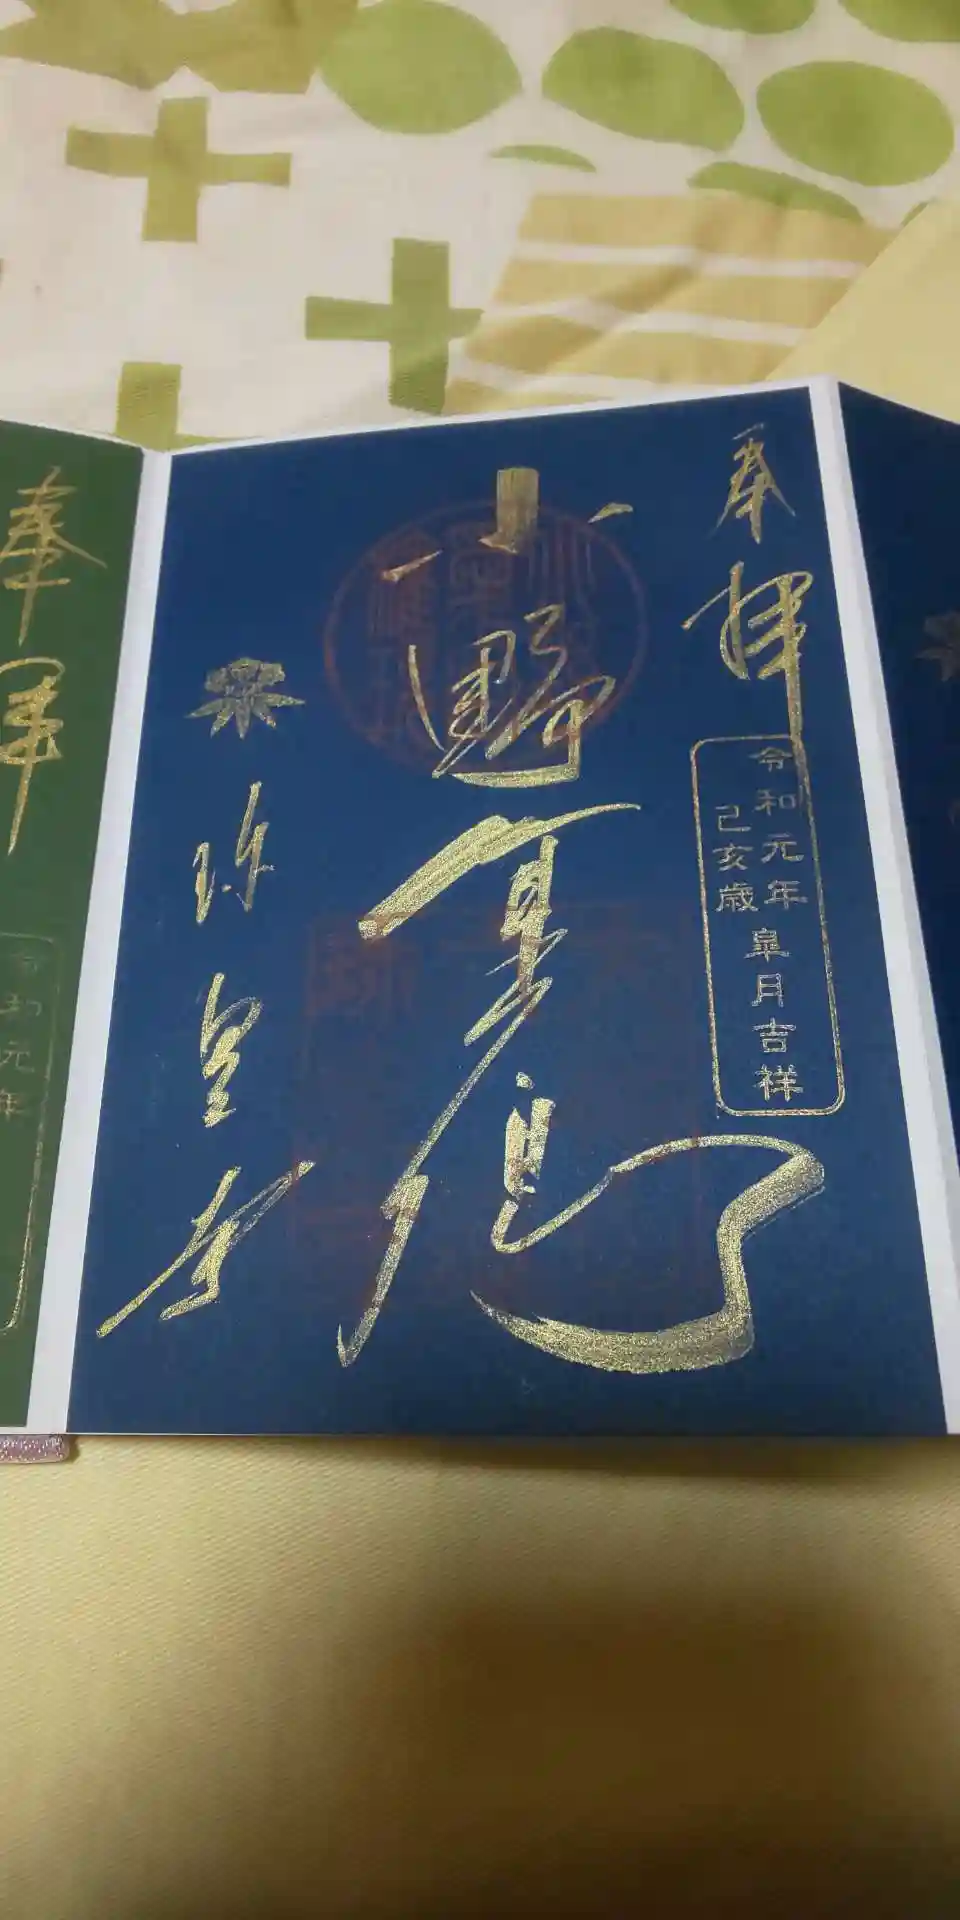 奉拝
令和元年
己亥歳
皐月吉祥
小野篁卿
珍皇寺
奉拝
令和元年